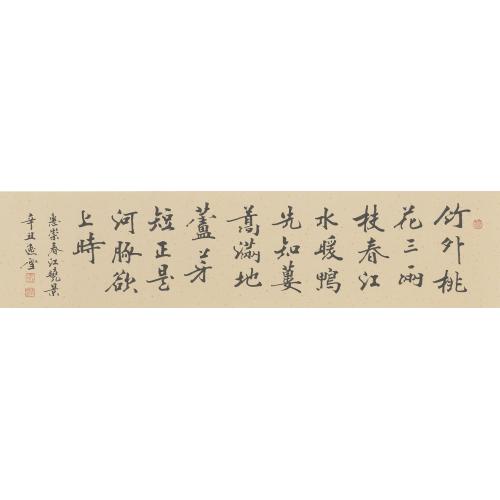 竹外桃
花三兩
枝春江
水暖鴨
先知蔞
蒿滿地
蘆芽
短正是
河豚欲
上時
惠崇春江曉景
辛丑